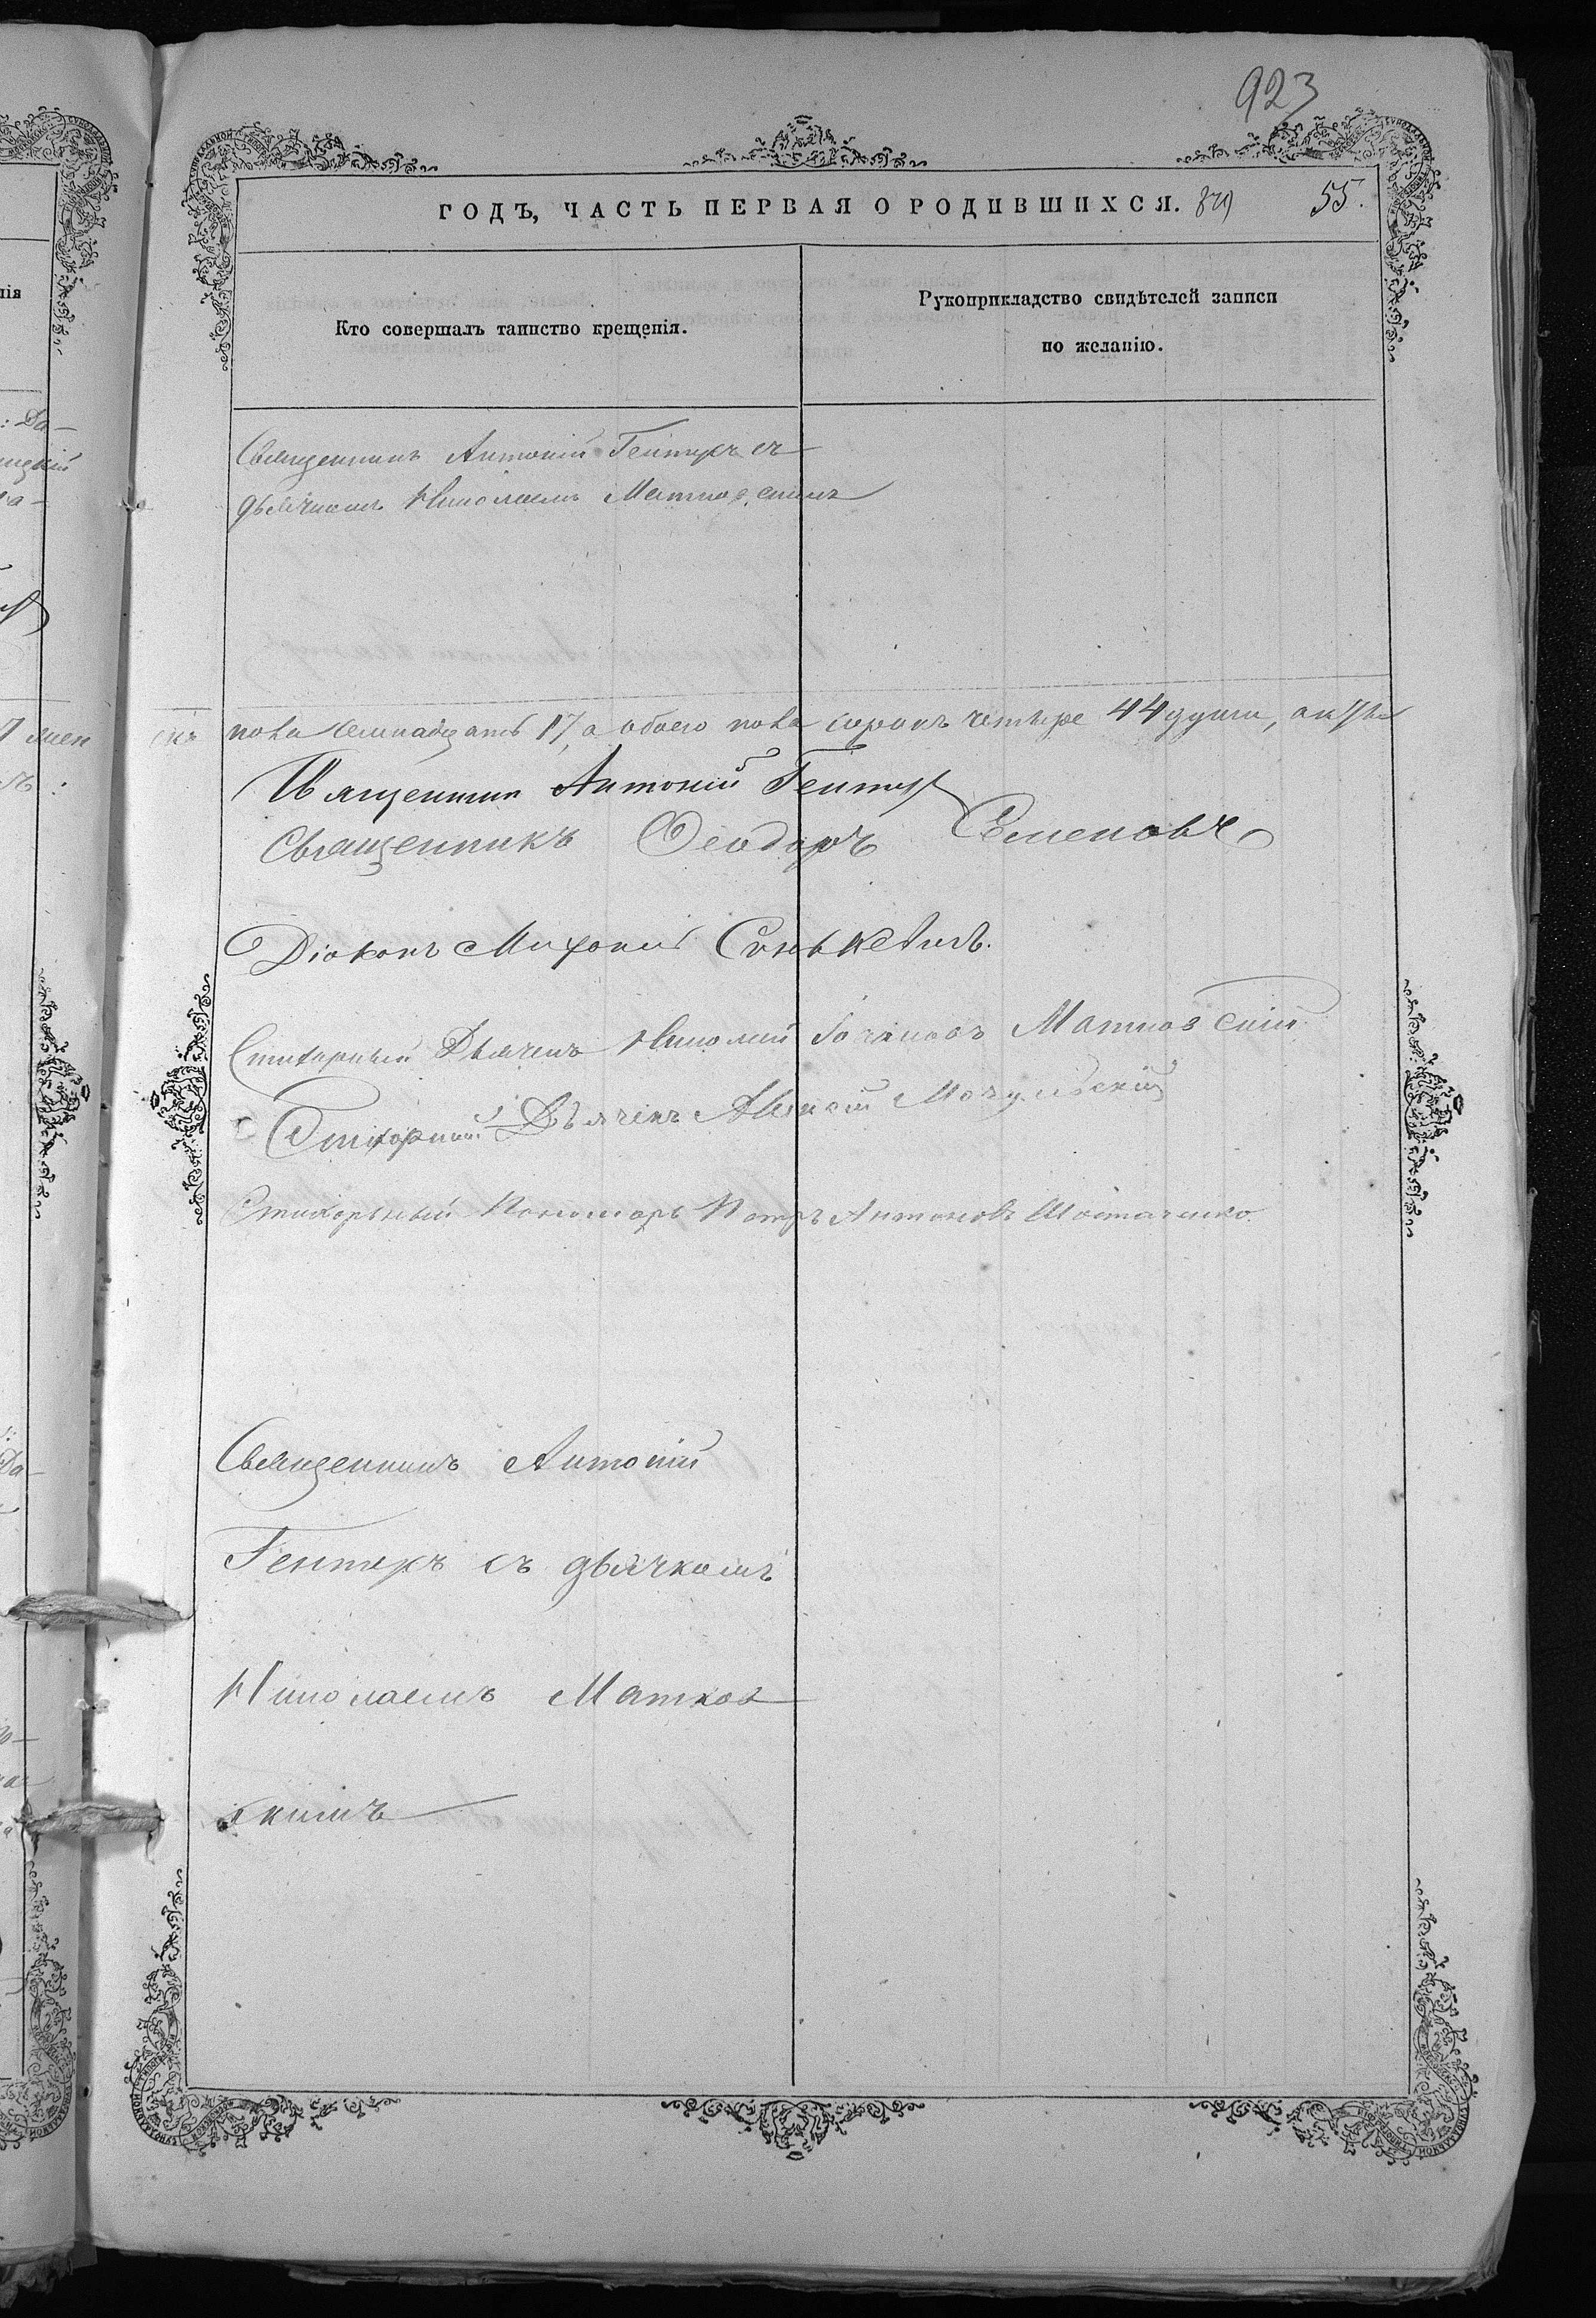 923
ГОДЪ, ЧАСТЬ ПЕРВАЯ О РОДИВШИХСЯ. 55.
Кто совершалъ таинство крещенія.
Рукоприкладство свидѣтелей записи
по желанію.
Священникъ Антоній Гентеръ съ
дьячкомъ Николаемъ Матковскимъ
пола семнадцать 17, а обоего пола сорокъ четыре 44 души,
Священникъ Антоній Гентер
Священникъ Ѳеодоръ Семеновъ
Діаконъ
Стихарный Дьячекъ Николай Матковскій
Стихарный Дьячекъ Алексѣй Мочульскій
Стихарный Пономарь Петръ Антоновъ
Священникъ Антоній
Гентеръ съ дьячкомъ
Николаемъ Матков
скимъ